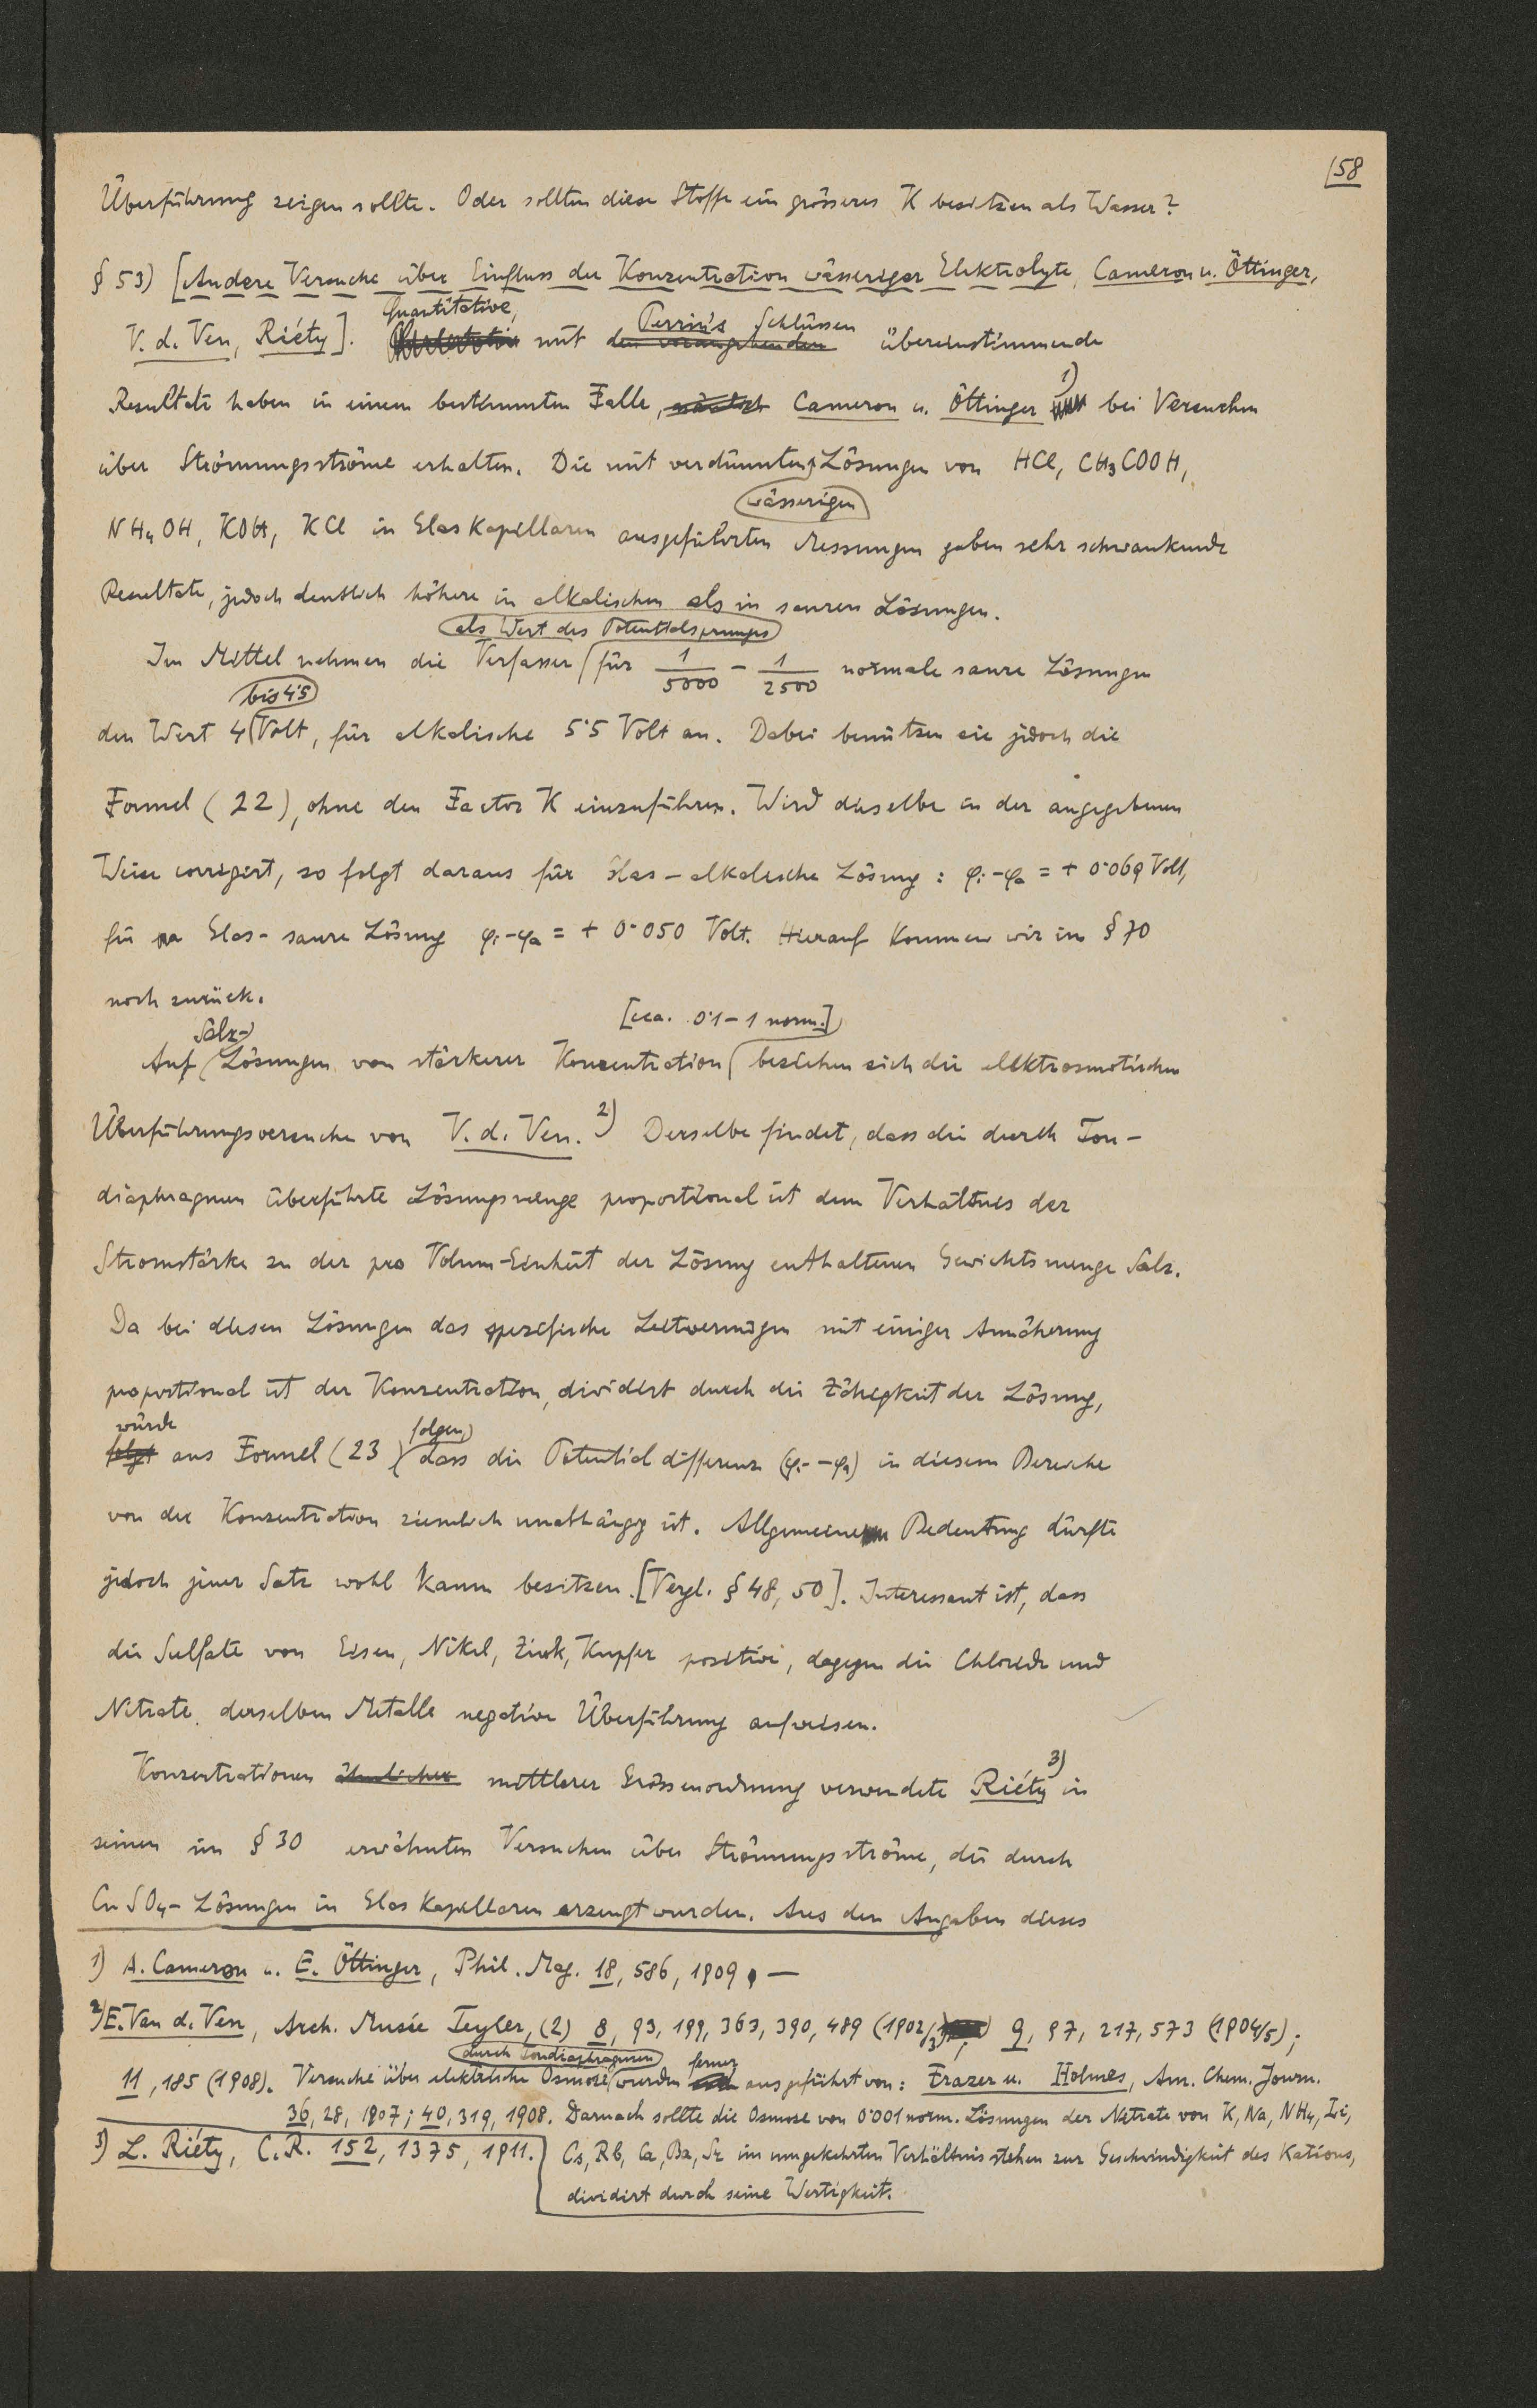 158
Überführung zeigen sollte. Oder sollten diese Stoffe ein grösseres K besitzen als Wasser?
§ 53) [Andere Versuche über Einfluss der Konzentration wässeriger Elektrolyte, Cameron u. Öttinger,
V. d. Ven, Riéty]. Quantitative, mit den vorangehenden Perrin's Schlüssen übereinstimmende
Resultate haben in einem bestimmten Falle, nämlich Cameron u. Öttinger 1) bei Versuchen
über Strömungsströme erhalten. Die mit verdünnten wässerigen Lösungen von HCl, CH3COOH,
NH4OH, KOH, KCl in Glaskapillaren ausgeführten Messungen gaben sehr schwankende
Resultate, jedoch deutlich höhere in alkalischen als in sauren Lösungen.
Im Mittel nehmen die Verfasser als Wert des Potentialsprunges für 1/5000 – 1/2500 normale saure Lösungen
den Wert 4 bis 4·5 Volt, für alkalische 5·5 Volt an. Dabei benützen sie jedoch die
Formel (22), ohne den Factor K einzuführen. Wird dieselbe in der angegebenen
Weise corrigirt, so folgt daraus für Glas – alkalische Lösung: φi – φa = + 0·069 Volt,
für Glas – saure Lösung φi – φa = + 0·050 Volt. Hierauf kommen wir in § 70
noch zurück.
Auf Salz-Lösungen von stärkerer Konzentration [cca. 0·1 – 1 norm.] beziehen sich die elektrosmotischen
Überführungsversuche von V. d. Ven. 2) Derselbe findet, dass die durch Ton-
diaphragmen überführte Lösungsmenge proportional ist dem Verhältnis der
Stromstärke zu der pro Volum-Einheit der Lösung enthaltenen Gewichtsmenge Salz.
Da bei diesen Lösungen das spezifische Leitvermögen mit einiger Annäherung
proportional ist der Konzentration, dividirt durch die Zähigkeit der Lösung,
folgt würde aus Formel (23) folgen, dass die Potentialdifferenz (φi – φa) in diesem Bereiche
von der Konzentration ziemlich unabhängig ist. Allgemeine Bedeutung dürfte
jedoch jener Satz wohl kaum besitzen. [Vergl. § 48, 50]. Interessant ist, dass
die Sulfate von Eisen, Nikel, Zink, Kupfer positive, dagegen die Chloride und
Nitrate derselben Metalle negative Überführung aufweisen.
Konzentrationen ähnlicher mittlerer Grössenordnung verwendete Riéty 3) in
seinen im § 30 erwähnten Versuchen über Strömungsströme, die durch
CuSO4 – Lösungen in Glaskapillaren erzeugt wurden. Aus den Angaben dieses
1) A. Cameron u. E. Öttinger, Phil. Mag. 18, 586, 1909. —
2) E. Van d. Ven, Arch. Musée Teyler, (2) 8, 93, 199, 363, 390, 489 (1902/3), 9, 97, 217, 573 (1904/5);
11, 185 (1908). Versuche über elektrische Osmose durch Tondiaphragmen wurden ferner ausgeführt von: Frazer u. Holmes, Am. Chem. Journ.
36, 28, 1907; 40, 319, 1908. Darnach sollte die Osmose von 0·001 norm. Lösungen der Nitrate von K, Na, NH4, Li,
Cs, Rb, Ca, Ba, Sr im umgekehrten Verhältnis stehen zur Geschwindigkeit des Kations,
dividirt durch seine Wertigkeit.
3) L. Riéty, C. R. 152, 1375, 1911.